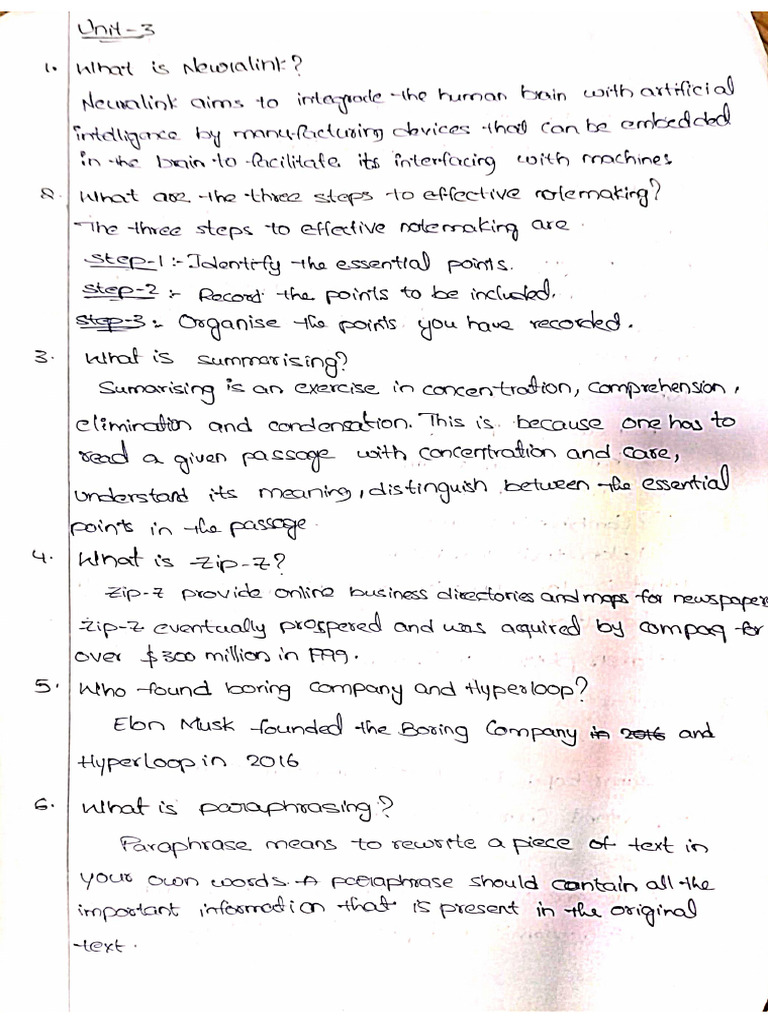 Unit-3
1. What is Neuralink?
Neuralink aims to integrade the human brain with artificial
intelligence by manufacturing devices that can be embedded
in the brain to facilitate its interfacing with machines
2. What are the three steps to effective notemaking?
The three steps to effective notemaking are.
Step-1:- Identify the essential points.
Step-2:- Record the points to be included.
Step-3:- Organise the points you have recorded.
3. What is summarising?
Sumarising is an exercise in concentration, comprehension,
elimination and condensation. This is because one has to
read a given passage with concentration and care,
understand its meaning, distinguish between the essential
points in the passage.
4. What is Zip-Z?
Zip-Z provide online business directories and maps for newspapers
Zip-Z eventually prospered and was aquired by compaq for
over $300 million in 1999.
5. Who found boring company and Hyperloop?
Elon Musk founded the Boring Company in 2016 and
Hyperloop in 2016
6. What is paraphrasing?
Paraphrase means to rewrite a piece of text in
your own words. A paraphrase should contain all the
important information that is present in the original
text.